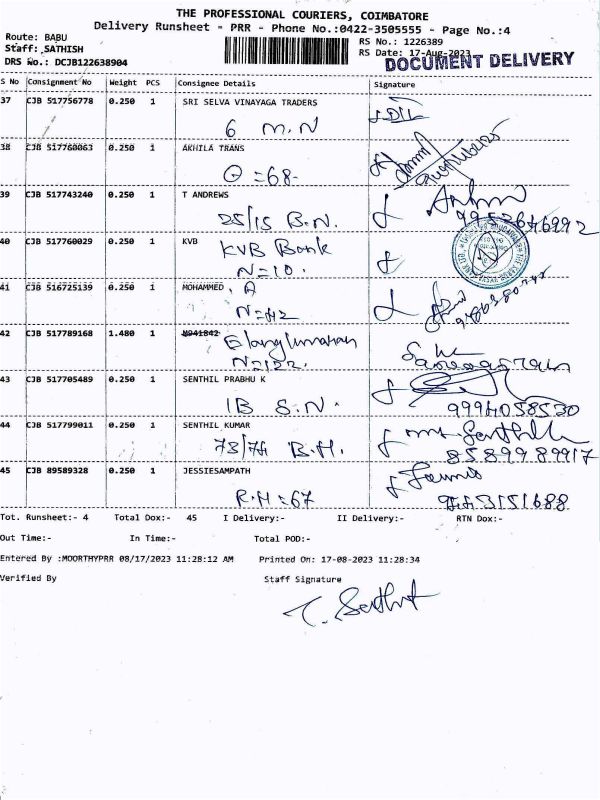 THE PROFESSIONAL COURIERS, COIMBATORE
Delivery Runsheet - PRR - Phone No.:0422-3505555 - Page No.:4
Route: BABU
RS No.: 1226389
Staff: SATHISH
RS Date: 17-Aug-2023
DRS No.: DCJB122638904
DOCUMENT DELIVERY
S No Consignment No Weight PCS Consignee Details Signature
37 CJB 517756778 0.250 1 SRI SELVA VINAYAGA TRADERS
6 M.N
38 CJB 517760063 0.250 1 AKHILA TRANS
=68-
39 CJB 517743240 0.250 1 T ANDREWS
25/15 B.N.
40 CJB 517760029 0.250 1 KVB
KVB Bank
N=10.
41 CJB 516725139 0.250 1 MOHAMMED . A
N=42
42 CJB 517789168 1.480 1 M941842
N=122.
43 CJB 517705489 0.250 1 SENTHIL PRABHU K
1B S.N.
9994058530
44 CJB 517799011 0.250 1 SENTHIL KUMAR
73/74 B.H.
8589989917
45 CJB 89589328 0.250 1 JESSIESAMPATH
R.H=67
Tot. Runsheet:- 4 Total Dox:- 45 I Delivery:- II Delivery:- RTN Dox:-
Out Time:- In Time:- Total POD:-
Entered By :MOORTHYPRR 08/17/2023 11:28:12 AM Printed On: 17-08-2023 11:28:34
Verified By Staff Signature